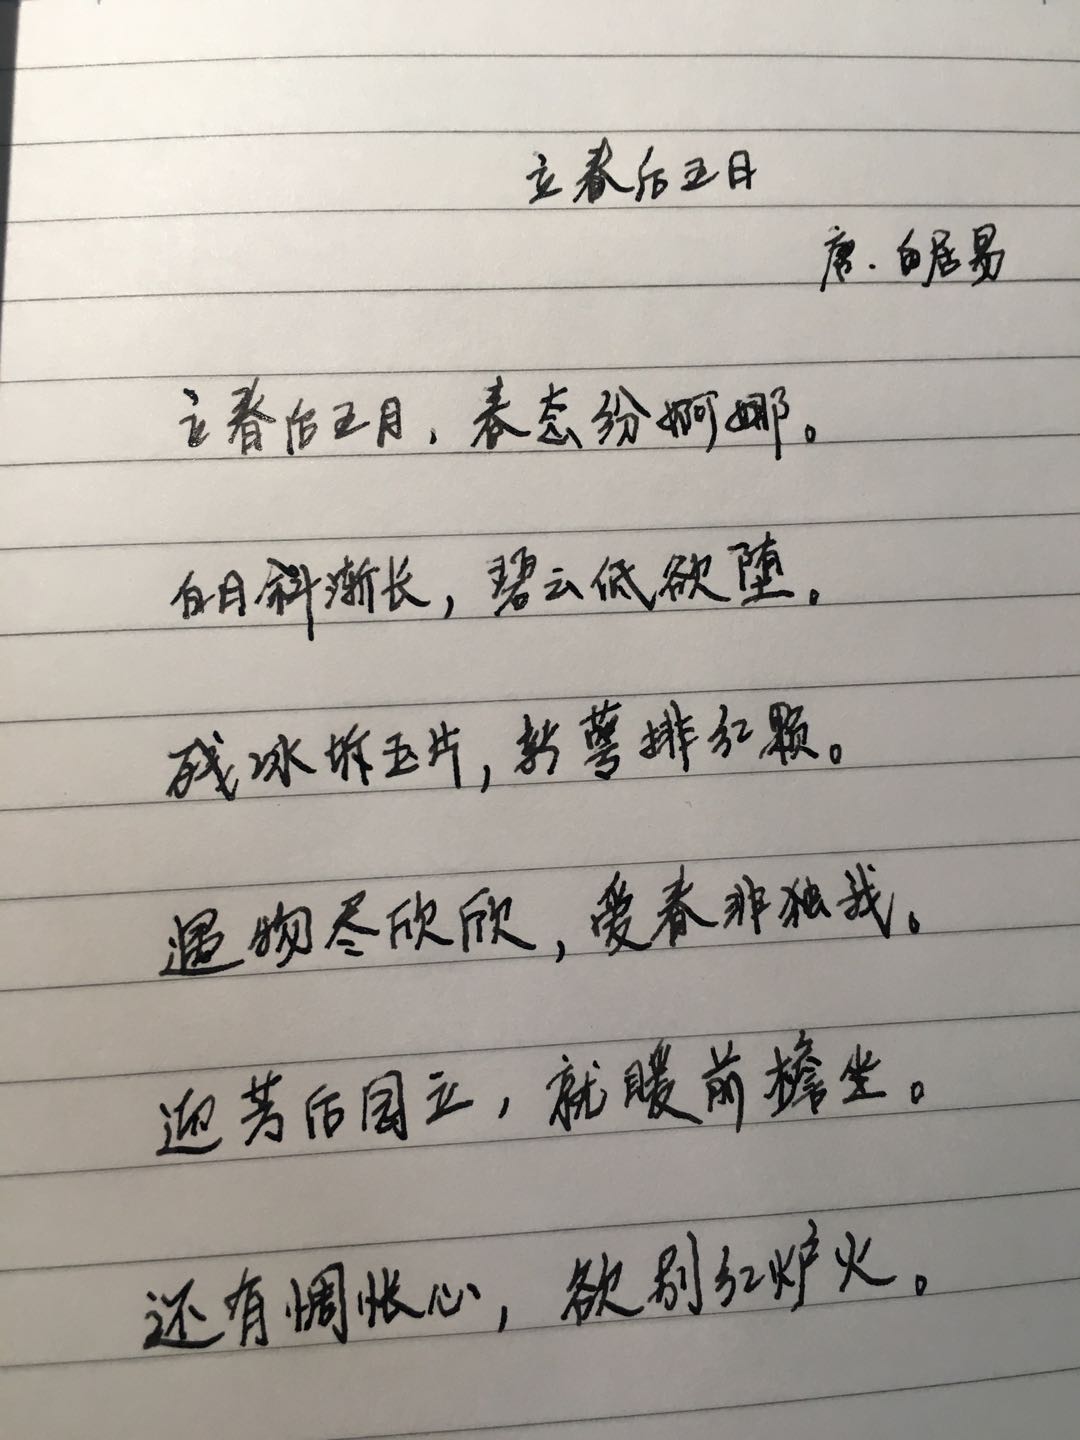 立春后五日
唐·白居易
立春后五日，春态纷婀娜。
白日斜渐长，碧云低欲堕。
残冰坼玉片，新萼排红颗。
遇物尽欣欣，爱春非独我。
迎芳后园立，就暖前檐坐。
还有惆怅心，欲别红炉火。